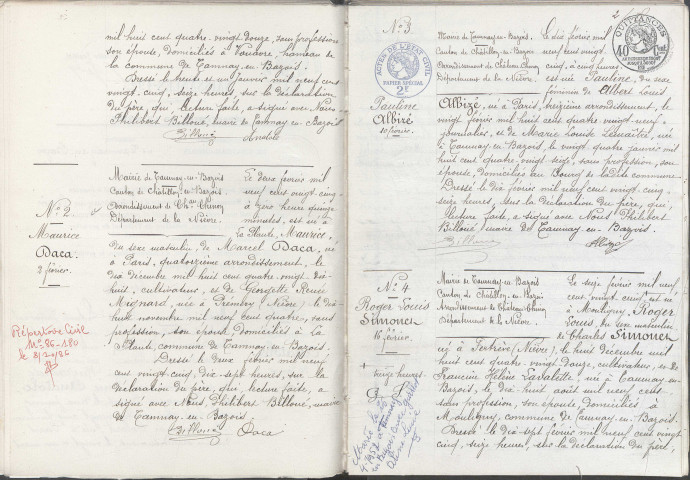 mil huit cent quatre-vingt douze, sans profession
son épouse, domiciliés à Vouavre, hameau de
la commune de Tannay-en-Bazois.
Dressé le trente et un janvier mil neuf cent
vingt-cinq, seize heures, sur la déclaration
du père, qui lecture faite, a signé avec Nous
Philibert Billoué, maire de Tannay-en-Bazois
Billoué
N° 2
Maurice
Daca
2 février.
Répertoire Civil
N° 86-180
le
Mairie de Tannay-en-Bazois
Canton de Châtillon-en-Bazois
Arrondissement de Ch.au Chinon
Département de la Nièvre
Le deux février mil
neuf cent vingt-cinq
à zéro heure quinze
minutes, est né à
la Plante, Maurice,
du sexe masculin de Marcel Daca, né
à Paris, quatorzième arrondissement, le
dix décembre mil huit cent quatre-vingt-dix-
huit, cultivateur, et de Georgette Renée
Mignard, née à Prémery (Nièvre) le dix-
huit novembre mil neuf cent quatre, sans
profession, son épouse. Domiciliés à La
Plante, commune de Tannay-en-Bazois.
Dressé le deux février mil neuf
cent vingt-cinq, dix-sept heures, sur la
déclaration du père, qui lecture faite, a
signé avec Nous, Philibert Billoué, maire
de Tannay-en-Bazois
Billoué Daca
N° 3
ACTES DE L'ÉTAT CIVIL
PAPIER SPÉCIAL
2F
Pauline
Albizé
10 février.
Mairie de Tannay-en-Bazois
Canton de Châtillon-en-Bazois
Arrondissement de Château-Chinon
Département de la Nièvre
2
QUITTANCES
Le dix février mil
neuf cent vingt-
cinq, à cinq heures
est née Pauline, du sexe
féminin de Albert Louis
Albizé, né à Paris, treizième arrondissement, le
vingt février mil huit cent quatre-vingt-neuf
journalier, et de Marie Louise Lemaître, née
à Tannay-en-Bazois, le vingt-quatre janvier mil
huit cent quatre-vingt-seize, sans profession, son
épouse, domiciliés au Bourg de ladite commune
Dressé le dix février mil neuf cent vingt-cinq
seize heures, sur la déclaration du père, qui,
lecture faite, a signé avec Nous Philibert
Billoué, maire de Tannay-en-Bazois.
Billoué Albizé
N° 4
Roger Louis
Simonet
16 février.
onze heures
Mairie de Tannay-en-Bazois
Canton de Châtillon-en-Bazois
Arrondissement de Château-Chinon
Département de la Nièvre
Le seize février mil neuf
cent vingt-cinq, est né
à Mouligny, Roger
Louis, du sexe masculin
de Charles Simonet
né à Tertrève (Nièvre), le huit Décembre mil
huit cent quatre-vingt-douze, cultivateur, et de
Francine Hélène Lavalette, née à Tannay-en-
Bazois, le dix août mil neuf cent
sans profession, son épouse, domiciliés à
Mouligny, commune de Tannay-en-Bazois.
Dressé le dix-sept février mil neuf cent vingt-
cinq, seize heures, sur la déclaration du père,